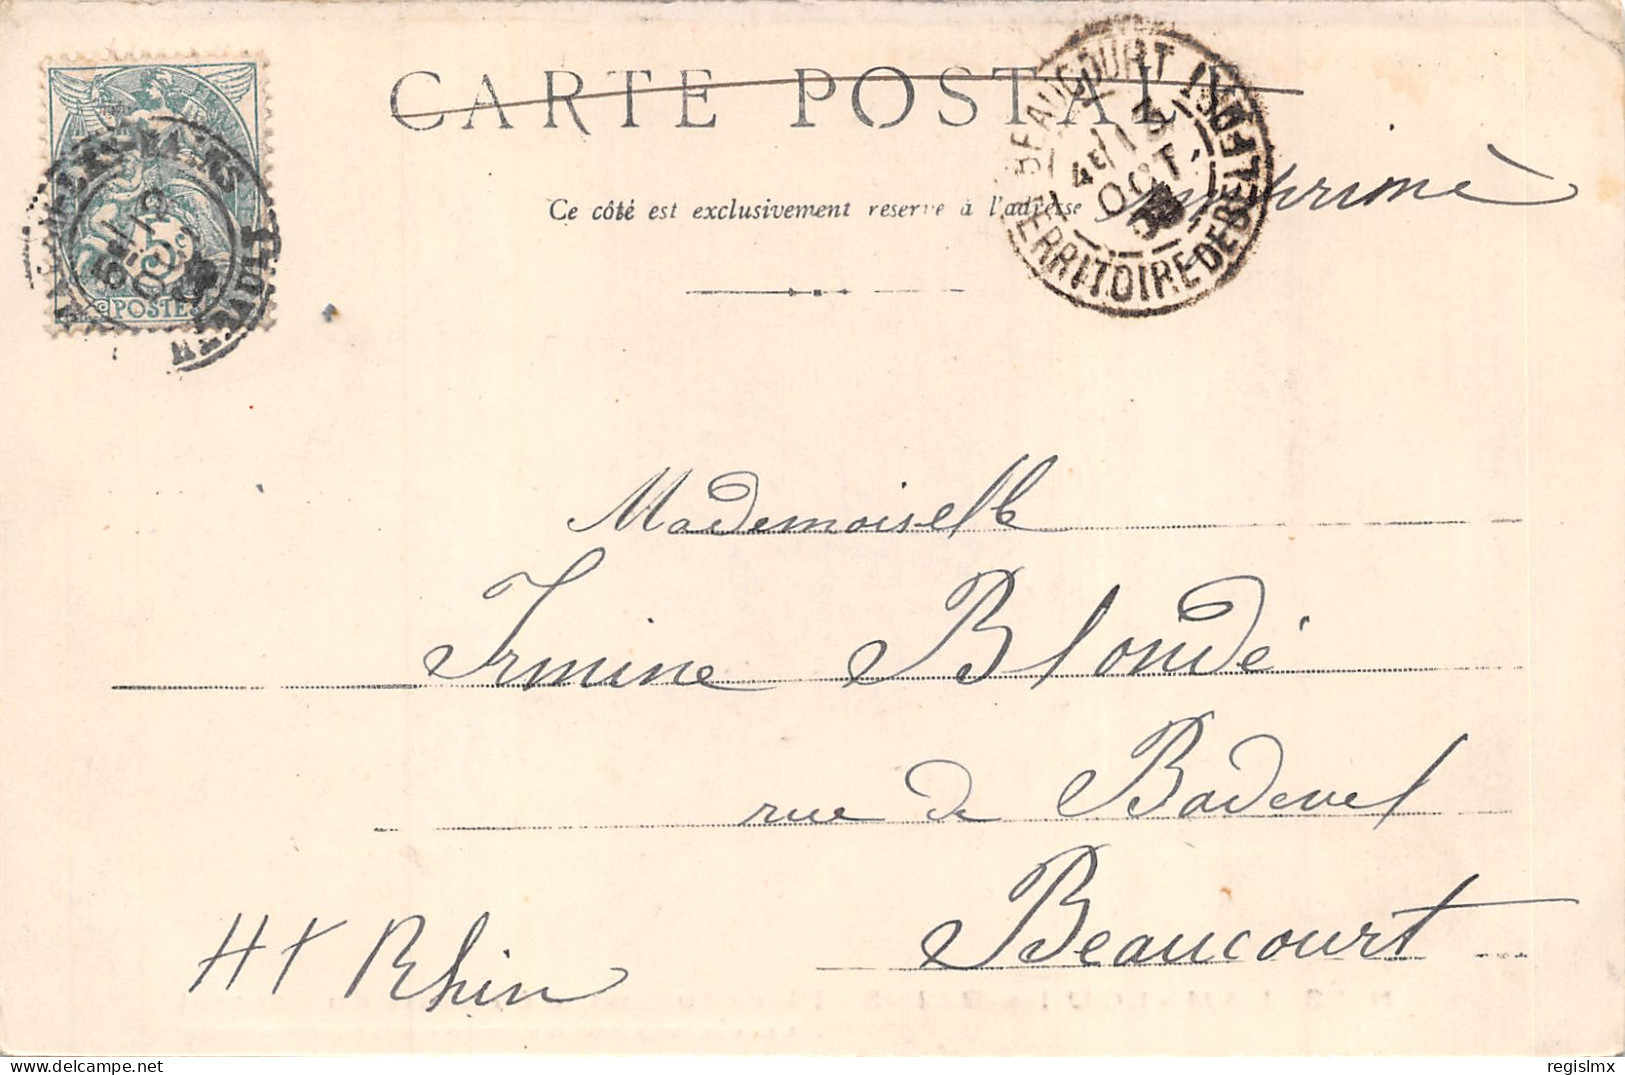 CARTE POSTALE
Ce côté est exclusivement reservé à l'adresse
imprimé
BEAUCOURT
4E/13
OCT.
TERRITOIRE DE BELFORT
LES-BAINS
HERAULT
5c
POSTES
Mademoiselle
Irmine Blondé
rue de Badevel
Beaucourt
Ht Rhin
regislmx